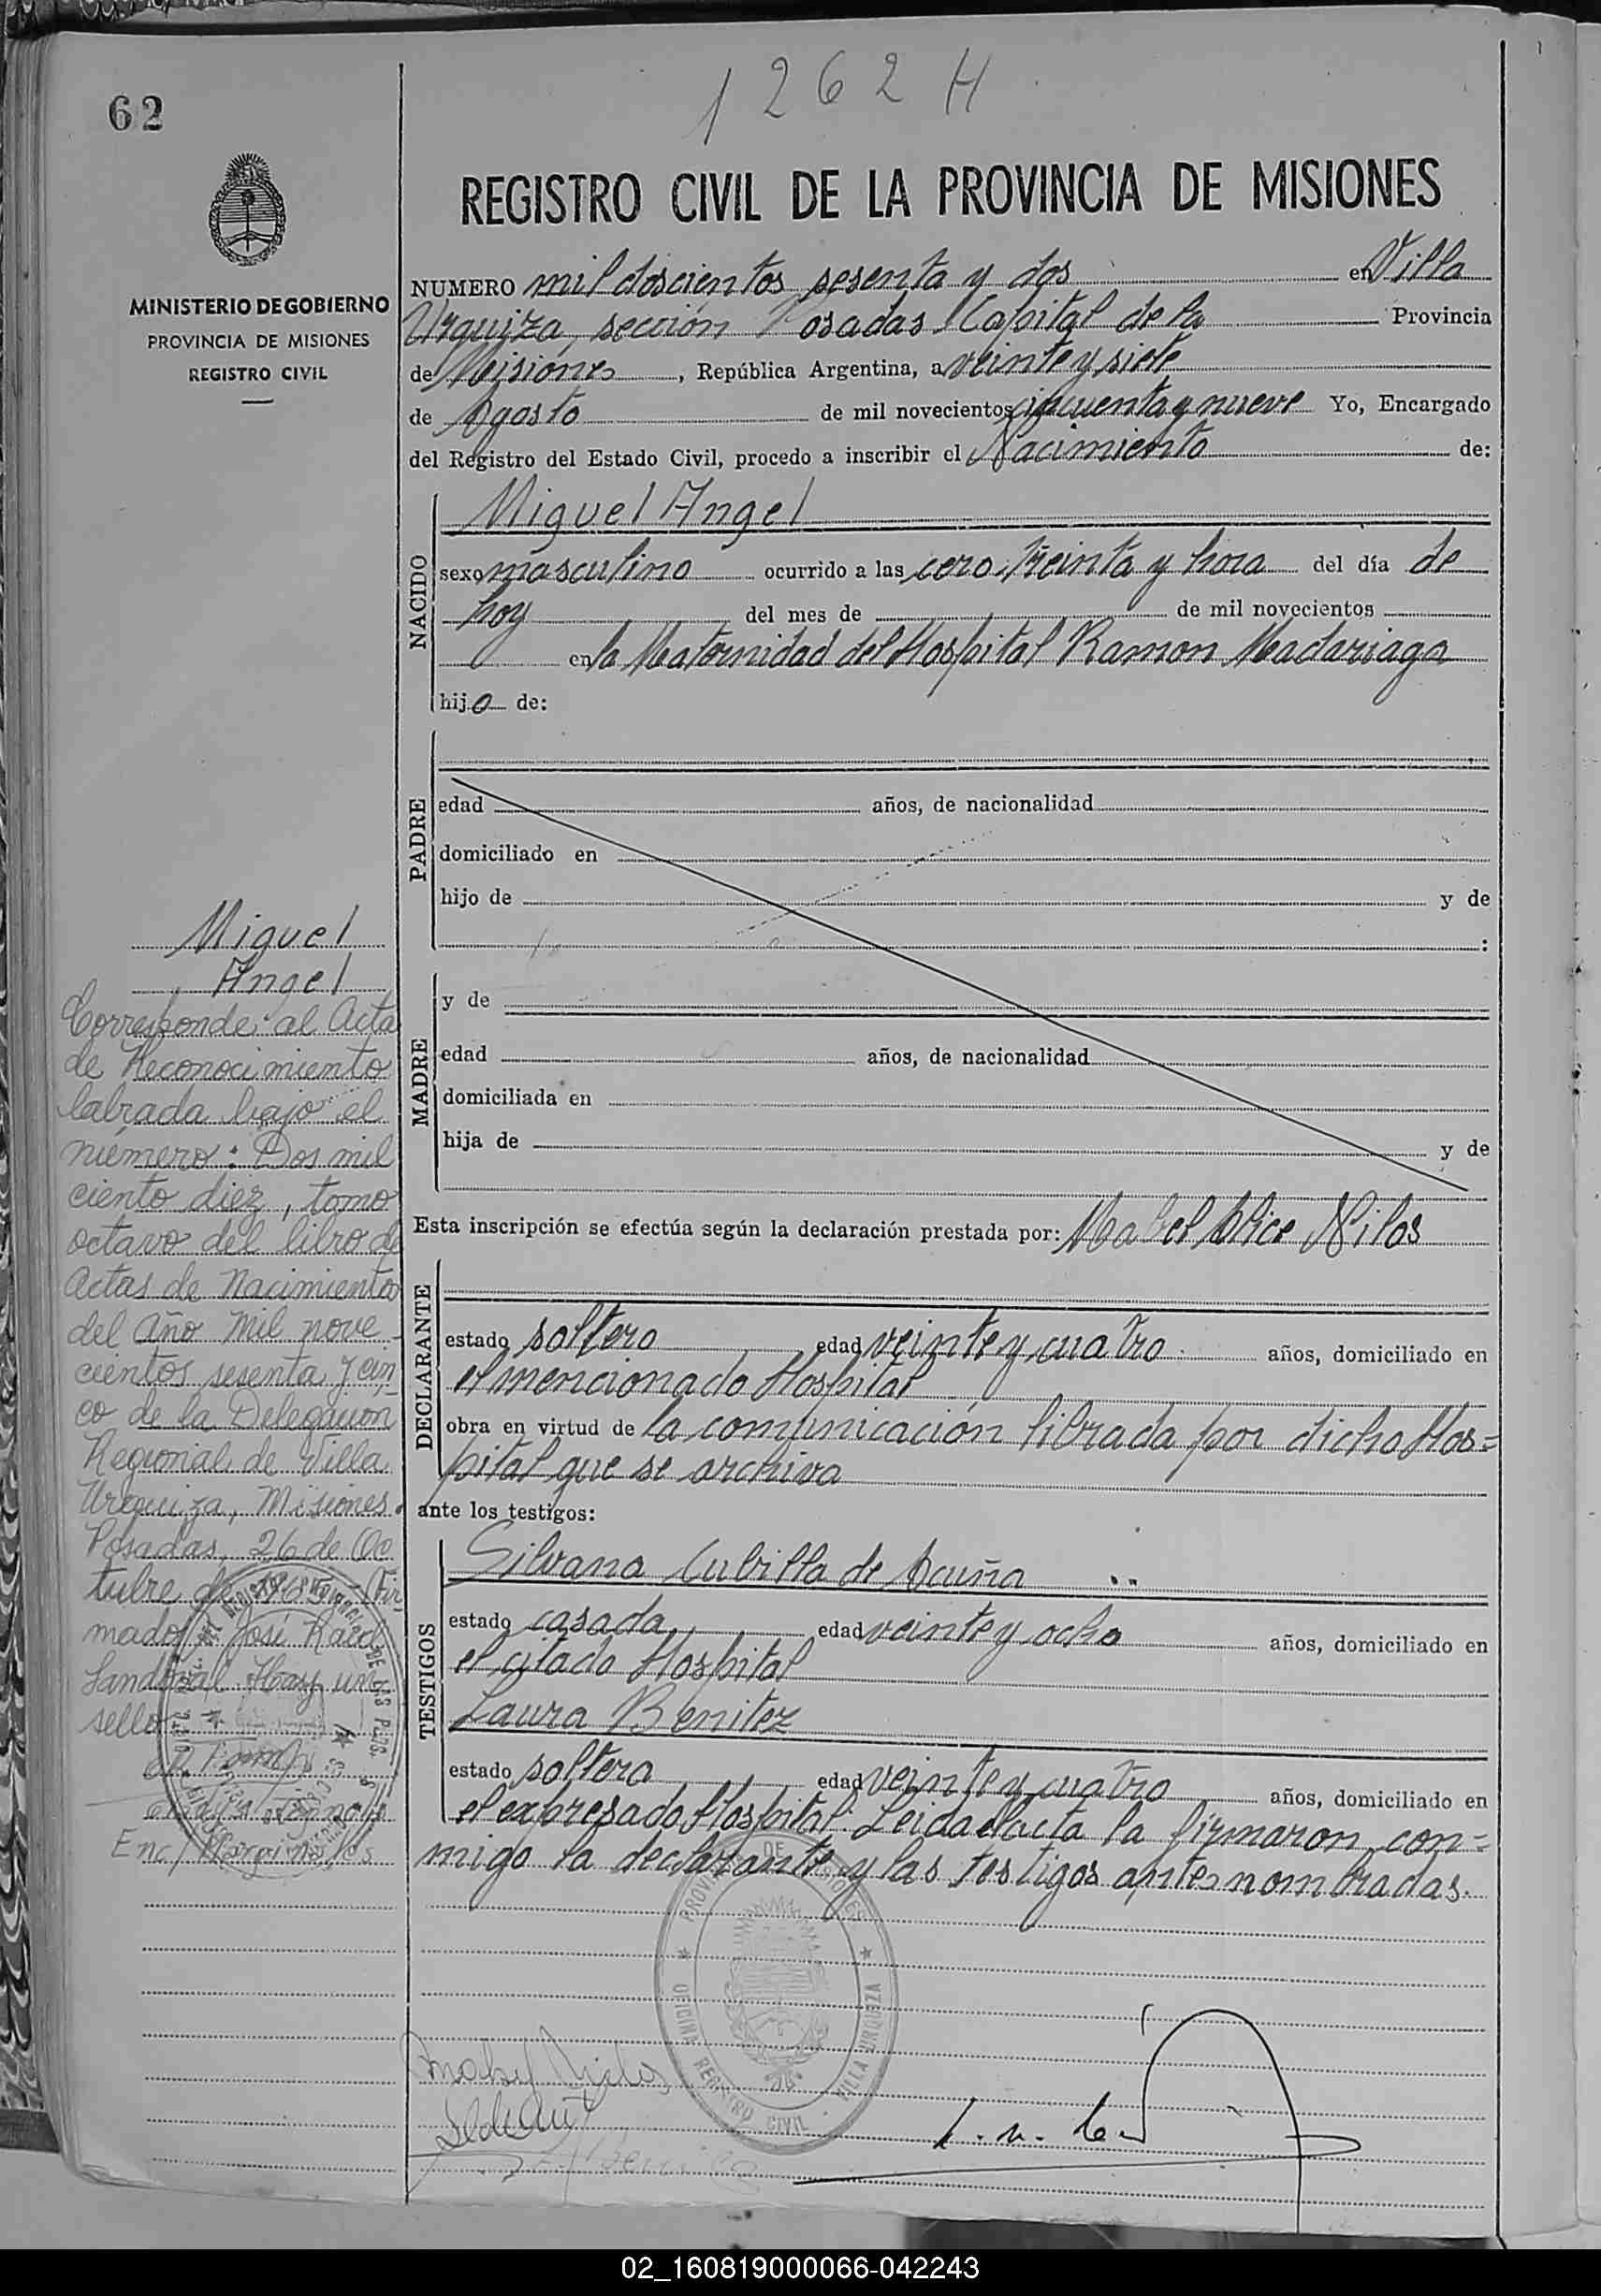 1262 H
62
REGISTRO CIVIL DE LA PROVINCIA DE MISIONES
MINISTERIO DE GOBIERNO
PROVINCIA DE MISIONES
REGISTRO CIVIL
NUMERO mil doscientos sesenta y dos en Villa
Urquiza, sección Posadas Capital de la Provincia
de Misiones, República Argentina, a veinte y siete
de Agosto de mil novecientos cincuenta y nueve Yo, Encargado
del Registro del Estado Civil, procedo a inscribir el Nacimiento de:
NACIDO
Miguel Angel
sexo masculino ocurrido a las cero treinta y hora del día de
hoy del mes de de mil novecientos
en la Maternidad del Hospital Ramon Madariaga
hijo de:
PADRE
edad años, de nacionalidad
domiciliado en
hijo de y de
:
MADRE
y de
edad años, de nacionalidad
domiciliada en
hija de y de
Esta inscripción se efectúa según la declaración prestada por: Mabel Alice Nilos
DECLARANTE
estado soltero edad veinte y cuatro años, domiciliado en
el mencionado Hospital
obra en virtud de la comunicación librada por dicho Hos=
pital que se archiva
ante los testigos:
TESTIGOS
Silvana Cubilla de Acuña
estado casada edad veinte y ocho años, domiciliado en
el citado Hospital
Laura Benitez
estado soltera edad veinte y cuatro años, domiciliado en
el expresado Hospital. Leida el acta la firmaron con=
migo la declarante y las testigos antes nombradas.
Miguel
Angel
Corresponde al Acta
de Reconocimiento
labrada bajo el
número: Dos mil
ciento diez, tomo
octavo del libro de
Actas de Nacimiento
del Año Mil nove-
cientos sesenta y cin-
co de la Delegacion
Regional de Villa
Urquiza, Misiones.
Posadas, 26 de Oc
tubre de 1965. Fir-
mado: José Raul
Sandoval. Hay un
sello
PROVINCIA DE MISIONES
OFICINA REGISTRO CIVIL · VILLA URQUIZA
Mabel Nilos
02_160819000066-042243